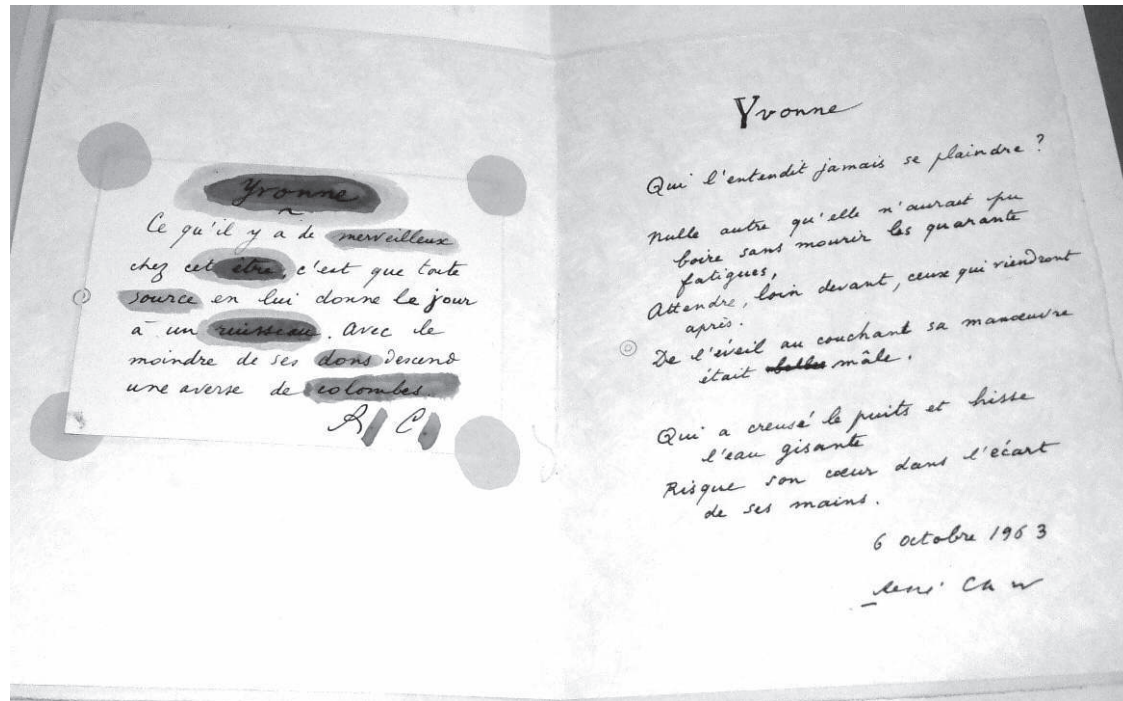 Yvonne
Ce qu'il y a de merveilleux
chez cet être, c'est que toute
source en lui donne le jour
à un ruisseau. Avec le
moindre de ses dons descend
une averse de colombes.
R C.
Yvonne
Qui l'entendit jamais se plaindre ?
Nulle autre qu'elle n'aurait pu
boire sans mourir les quarante
fatigues,
Attendre, loin devant, ceux qui viendront
après.
De l'éveil au couchant sa manœuvre
était mâle.
Qui a creusé le puits et hisse
l'eau gisante
Risque son cœur dans l'écart
de ses mains.
6 octobre 1963
René Char